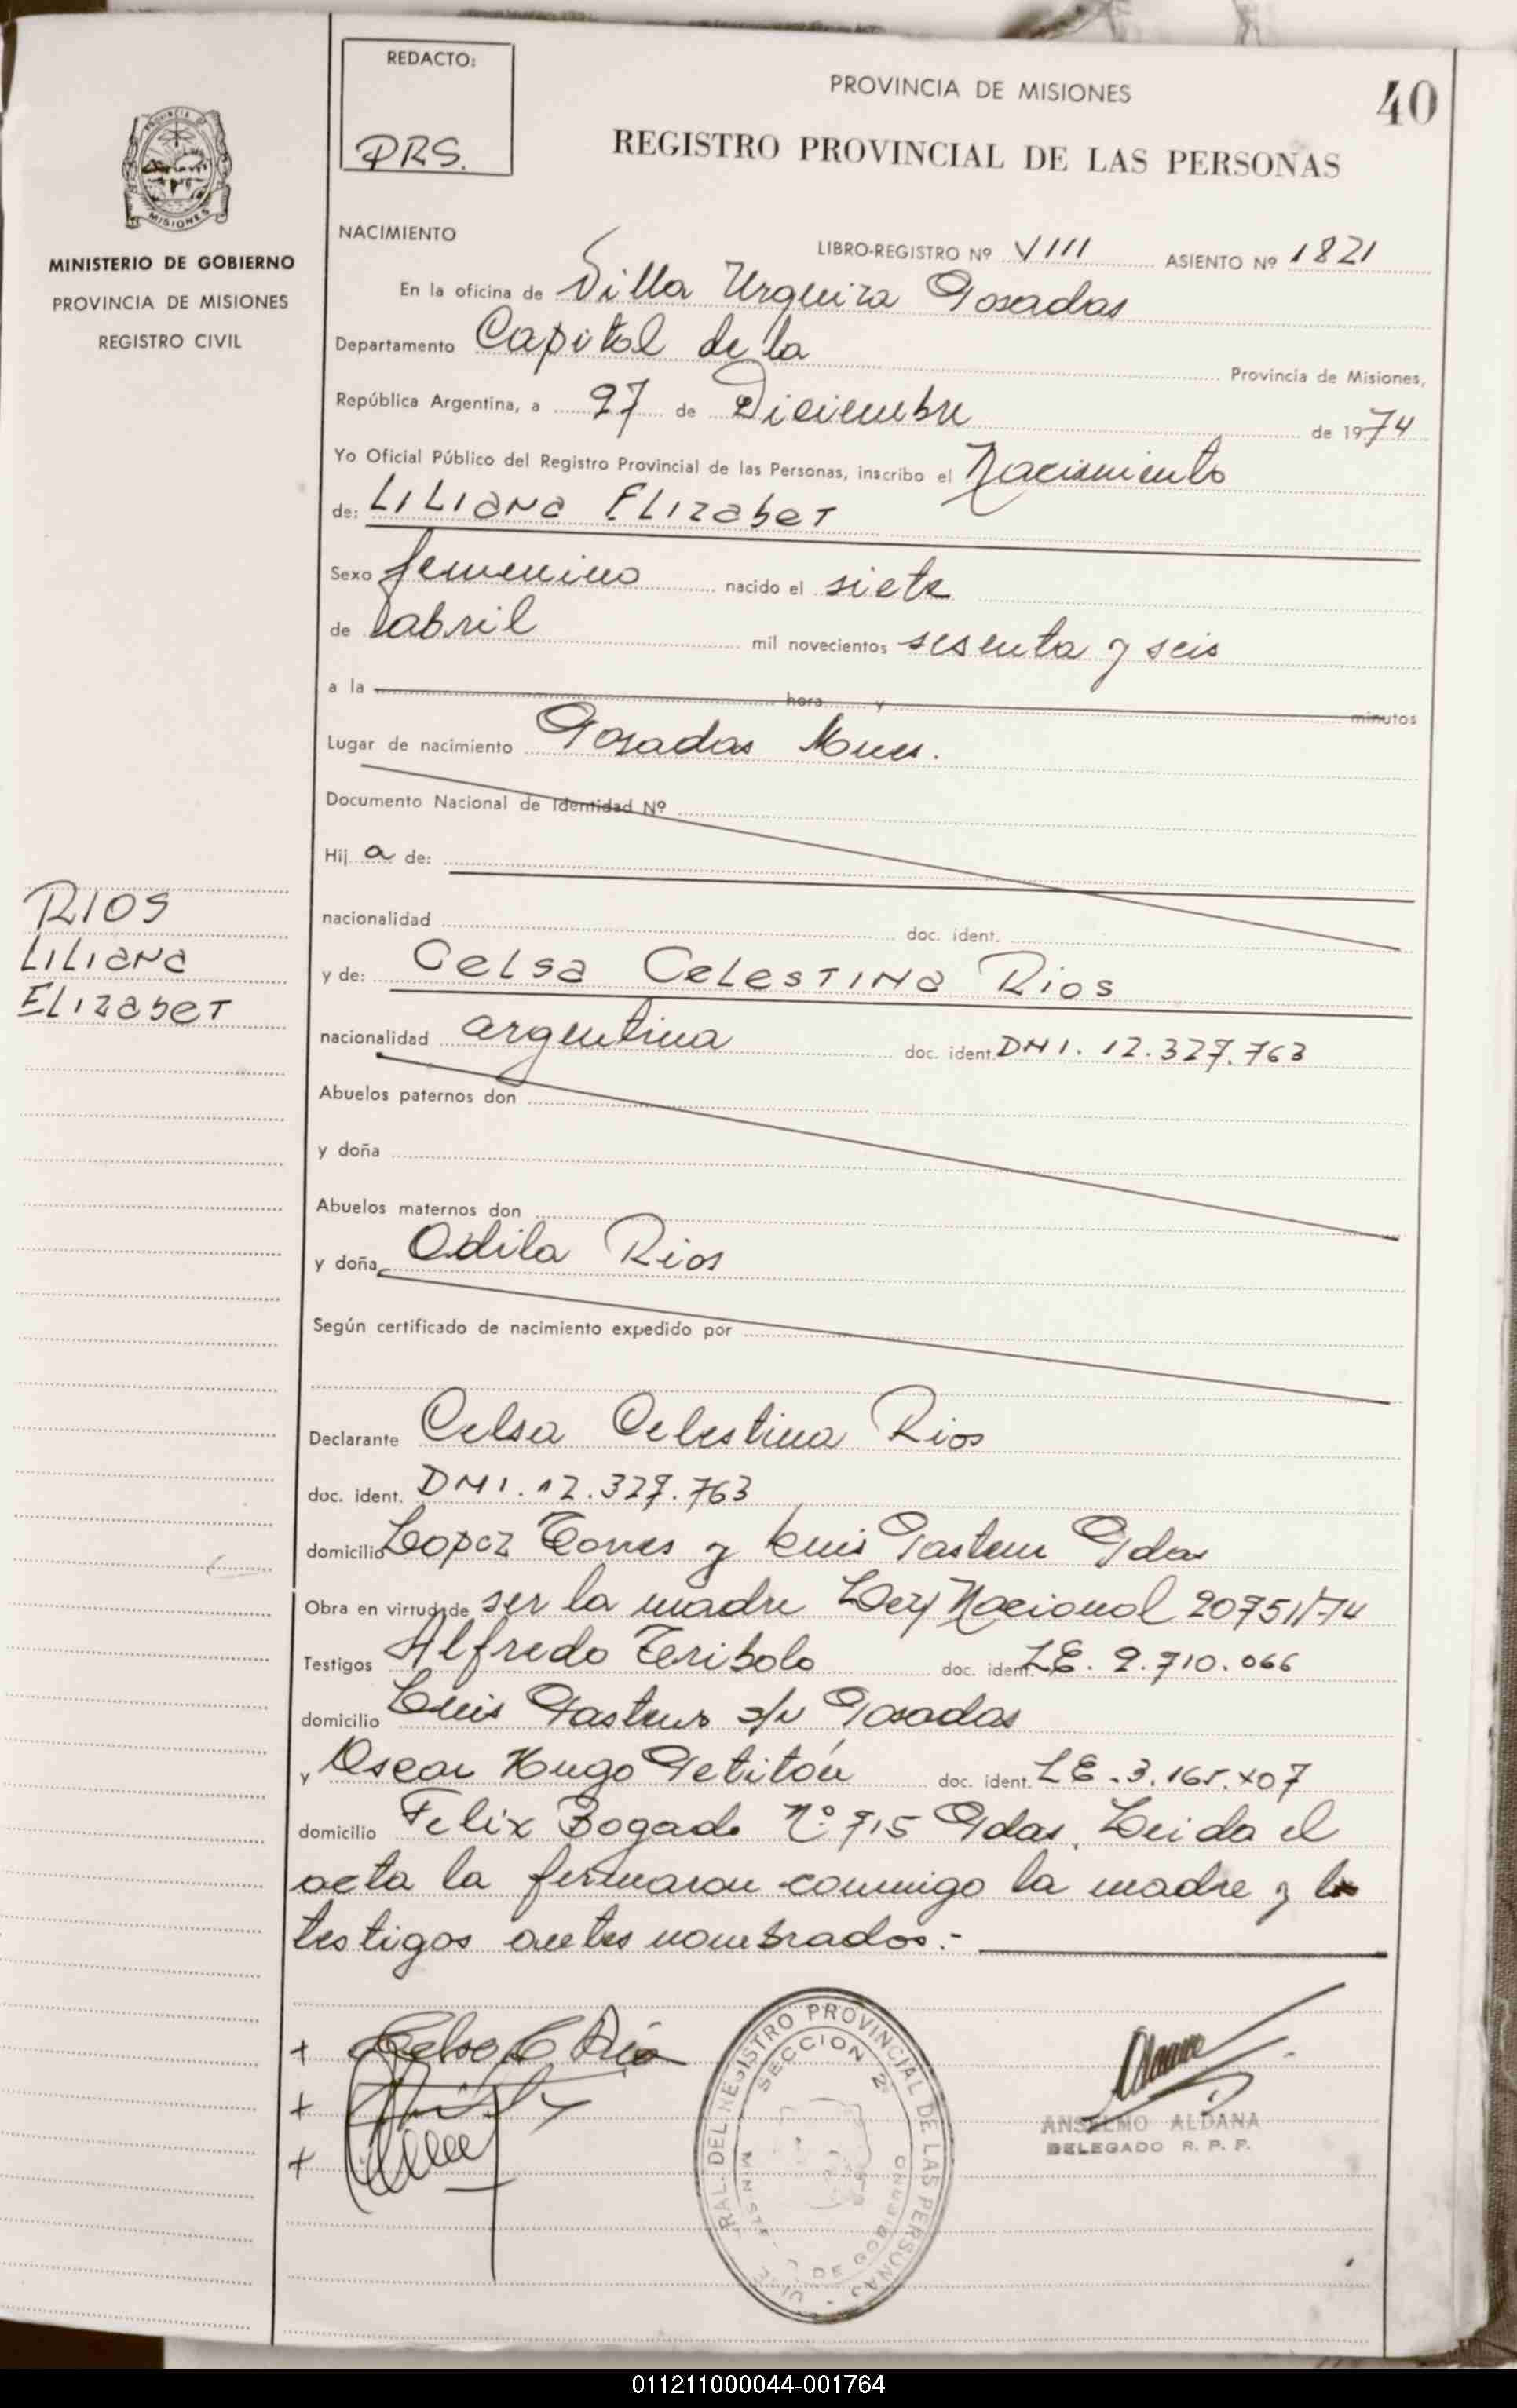 REDACTO:
PRS.
PROVINCIA DE MISIONES
40
REGISTRO PROVINCIAL DE LAS PERSONAS
MISIONES
MINISTERIO DE GOBIERNO
PROVINCIA DE MISIONES
REGISTRO CIVIL
NACIMIENTO
LIBRO-REGISTRO Nº VIII ASIENTO Nº 1821
En la oficina de Villa Urquiza Posadas
Departamento Capital de la Provincia de Misiones,
República Argentina, a 27 de Diciembre de 1974
Yo Oficial Público del Registro Provincial de las Personas, inscribo el Nacimiento
de: LILIANA ELIZABET
Sexo femenino nacido el siete
de abril mil novecientos sesenta y seis
a la hora y minutos
Lugar de nacimiento Posadas Mnes.
Documento Nacional de Identidad Nº
Hij a de:
nacionalidad doc. ident.
RIOS
LILIANA
ELIZABET
y de: CELSA CELESTINA RIOS
nacionalidad argentina doc. ident. DNI. 12.327.763
Abuelos paternos don
y doña
Abuelos maternos don
y doña Odila Rios
Según certificado de nacimiento expedido por
Declarante Celsa Celestina Rios
doc. ident. DNI. 12.327.763
domicilio Lopez Torres y Luis Pasteur Pdas
Obra en virtud de ser la madre Ley Nacional 20751/74
Testigos Alfredo doc. ident. LE. 2.710.066
domicilio Luis Pasteur s/n Posadas
y Oscar Hugo Petitón doc. ident. LE. 3.165.
domicilio Felix Bogado Nº 715 Pdas. Leida el
acta la firmaron conmigo la madre y los
testigos antes nombrados.-
RAL. DEL REGISTRO PROVINCIAL DE LAS PERSONAS
SECCION 2
ANSELMO ALDANA
DELEGADO R. P. P.
011211000044-001764